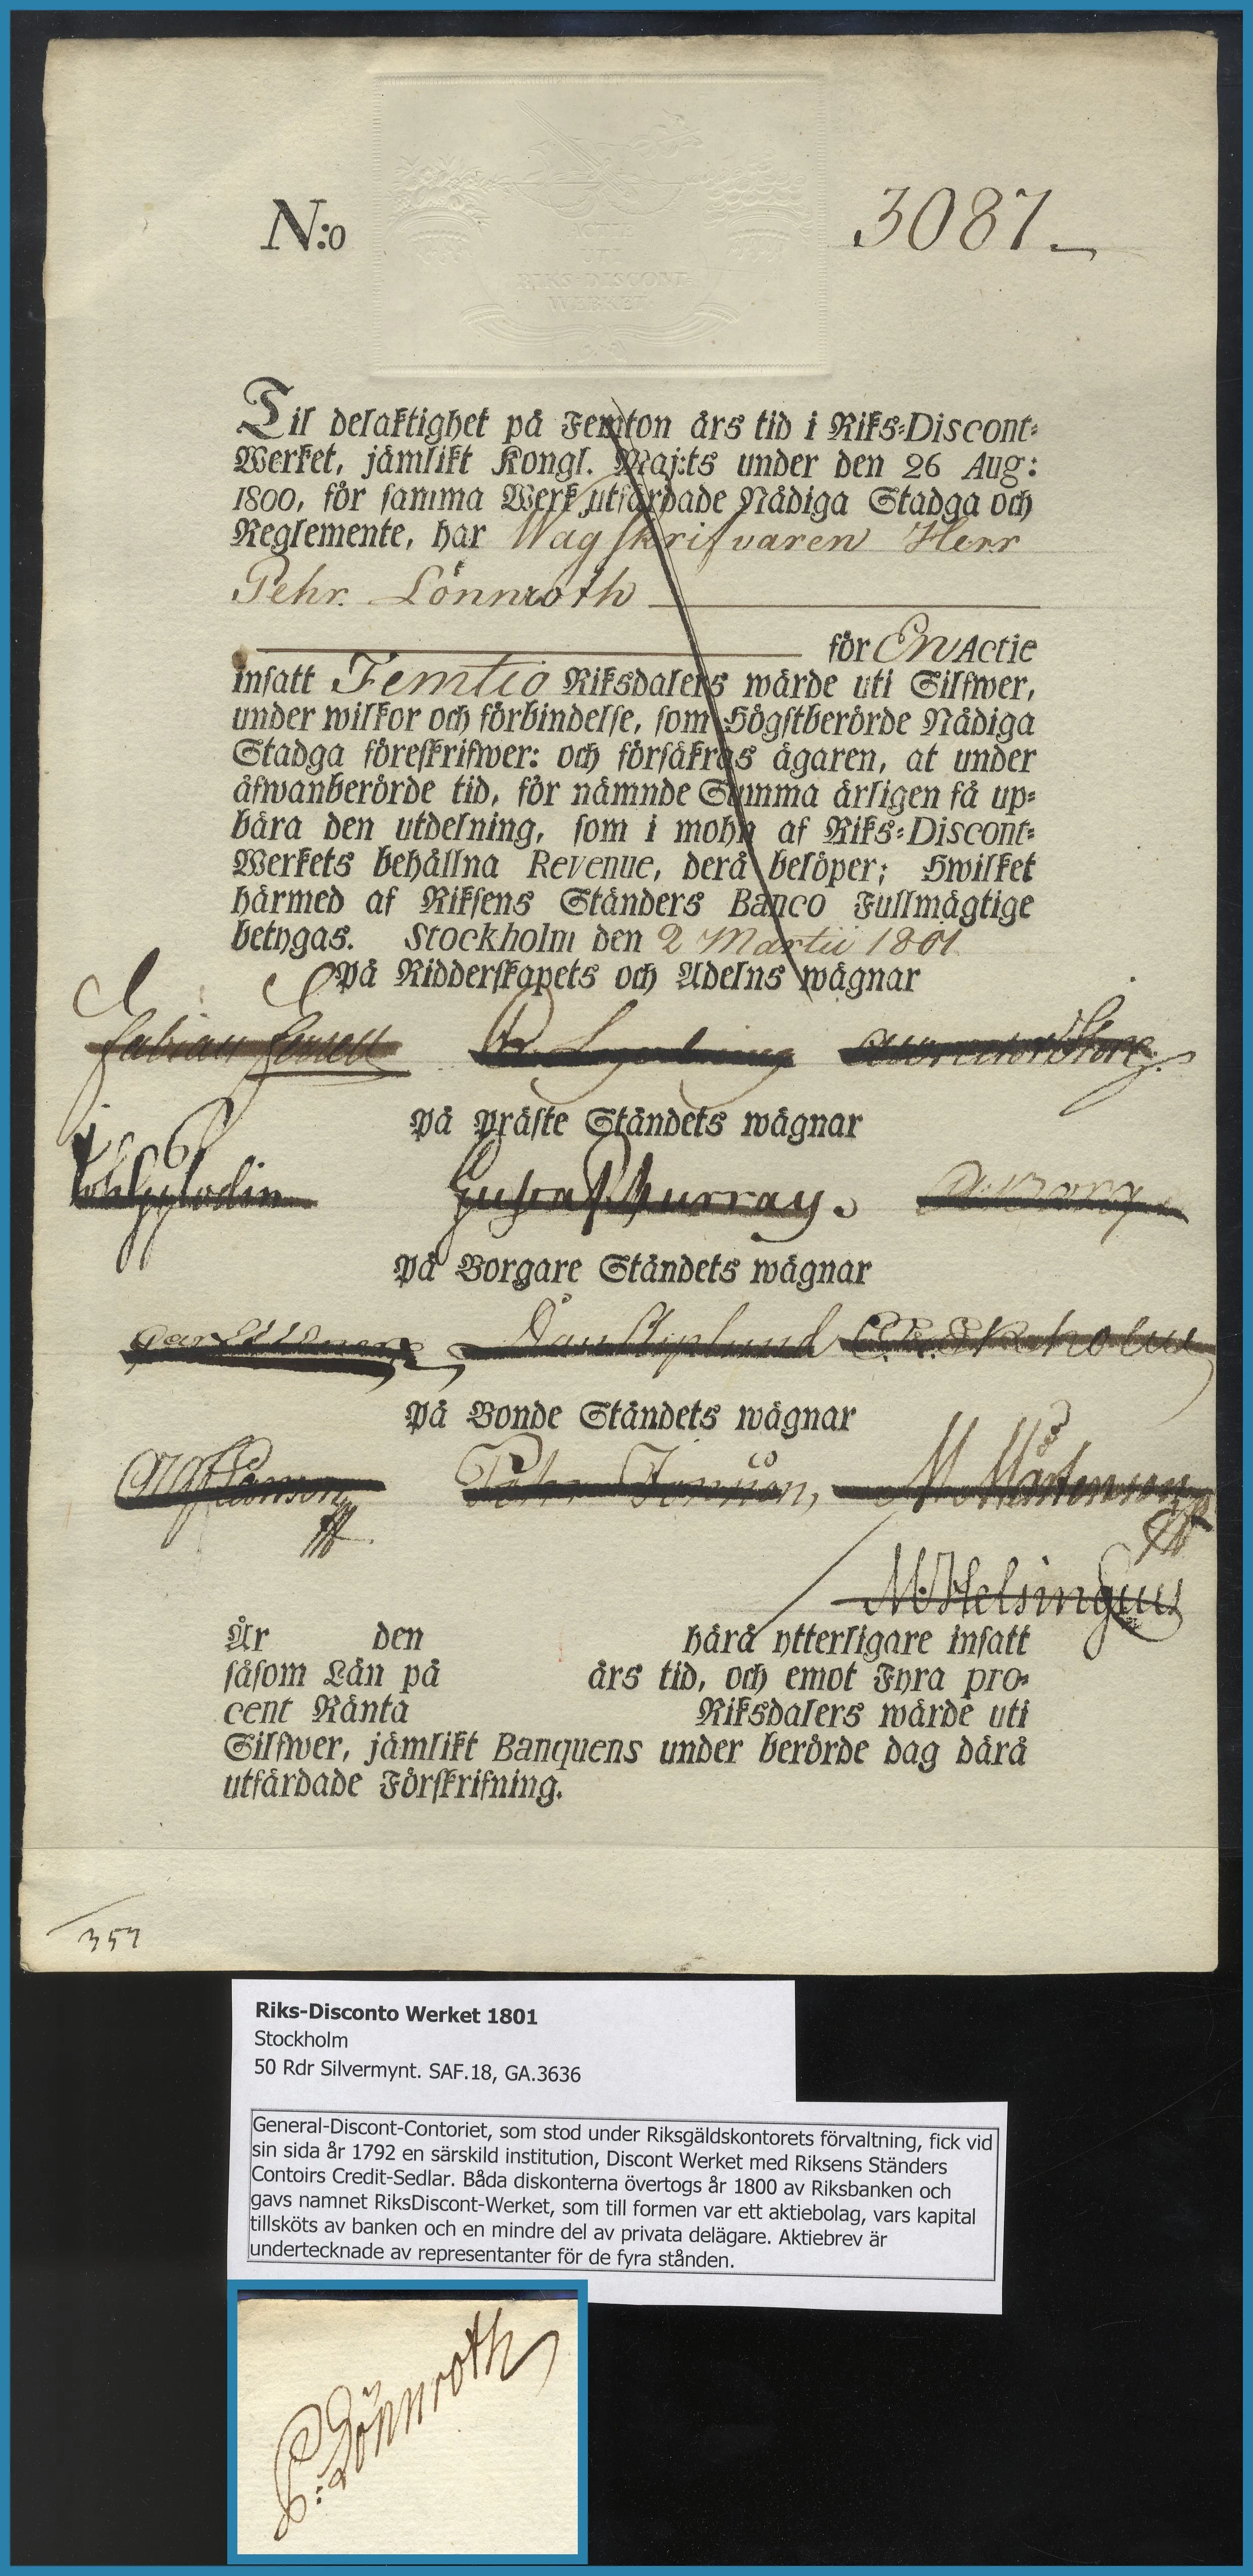 N:o 3087
ACTIE
UTI
RIKS-DISCONT-
WERKET
Til delaktighet på Femton års tid i Riks-Discont-
Werket, jämlikt Kongl. Maj:ts under den 26 Aug:
1800, för samma Werk utfärdade Nådiga Stadga och
Reglemente, har Wagskrifvaren Herr
Pehr Lönnroth
för En Actie
insatt Femtio Riksdalers wärde uti Silfwer,
under wilkor och förbindelse, som Högstberörde Nådiga
Stadga föreskrifwer: och försäkras ägaren, at under
äfwanberörde tid, för nämnde Summa årligen få up-
bära den utdelning, som i mohn af Riks-Discont-
Werkets behållna Revenue, derå belöper; Hwilket
härmed af Riksens Ständers Banco Fullmägtige
betygas. Stockholm den 2 Martii 1801
På Ridderskapets och Adelns wägnar
Fabian
På Präste Ståndets wägnar
Gustaf Murray.
På Borgare Ståndets wägnar
Dan Asplund C. E. Ekholm
På Bonde Ståndets wägnar
Pehr Jönsson, M Mårtensson
M. Helsingius
År den härå ytterligare insatt
såsom Lån på års tid, och emot Fyra pro-
cent Ränta Riksdalers wärde uti
Silfwer, jämlikt Banquens under berörde dag därå
utfärdade Förskrifning.
357
Riks-Disconto Werket 1801
Stockholm
50 Rdr Silvermynt. SAF.18, GA.3636
General-Discont-Contoriet, som stod under Riksgäldskontorets förvaltning, fick vid
sin sida år 1792 en särskild institution, Discont Werket med Riksens Ständers
Contoirs Credit-Sedlar. Båda diskonterna övertogs år 1800 av Riksbanken och
gavs namnet RiksDiscont-Werket, som till formen var ett aktiebolag, vars kapital
tillsköts av banken och en mindre del av privata delägare. Aktiebrev är
undertecknade av representanter för de fyra stånden.
P: Lönnroth